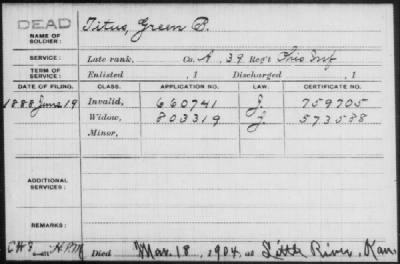 DEAD
NAME OF SOLDIER: Titus, Green P.
SERVICE: Late rank, Co. A, 39 Reg't Ohio Inf
TERM OF SERVICE: Enlisted , 1 Discharged , 1
DATE OF FILING. CLASS. APPLICATION NO. LAW. CERTIFICATE NO.
1888 June 19 Invalid, 660741 J. 759705
Widow, 803319 J. 573588
Minor,
ADDITIONAL SERVICES:
REMARKS:
Died Mar. 18, 1904, at Little River, Kan.